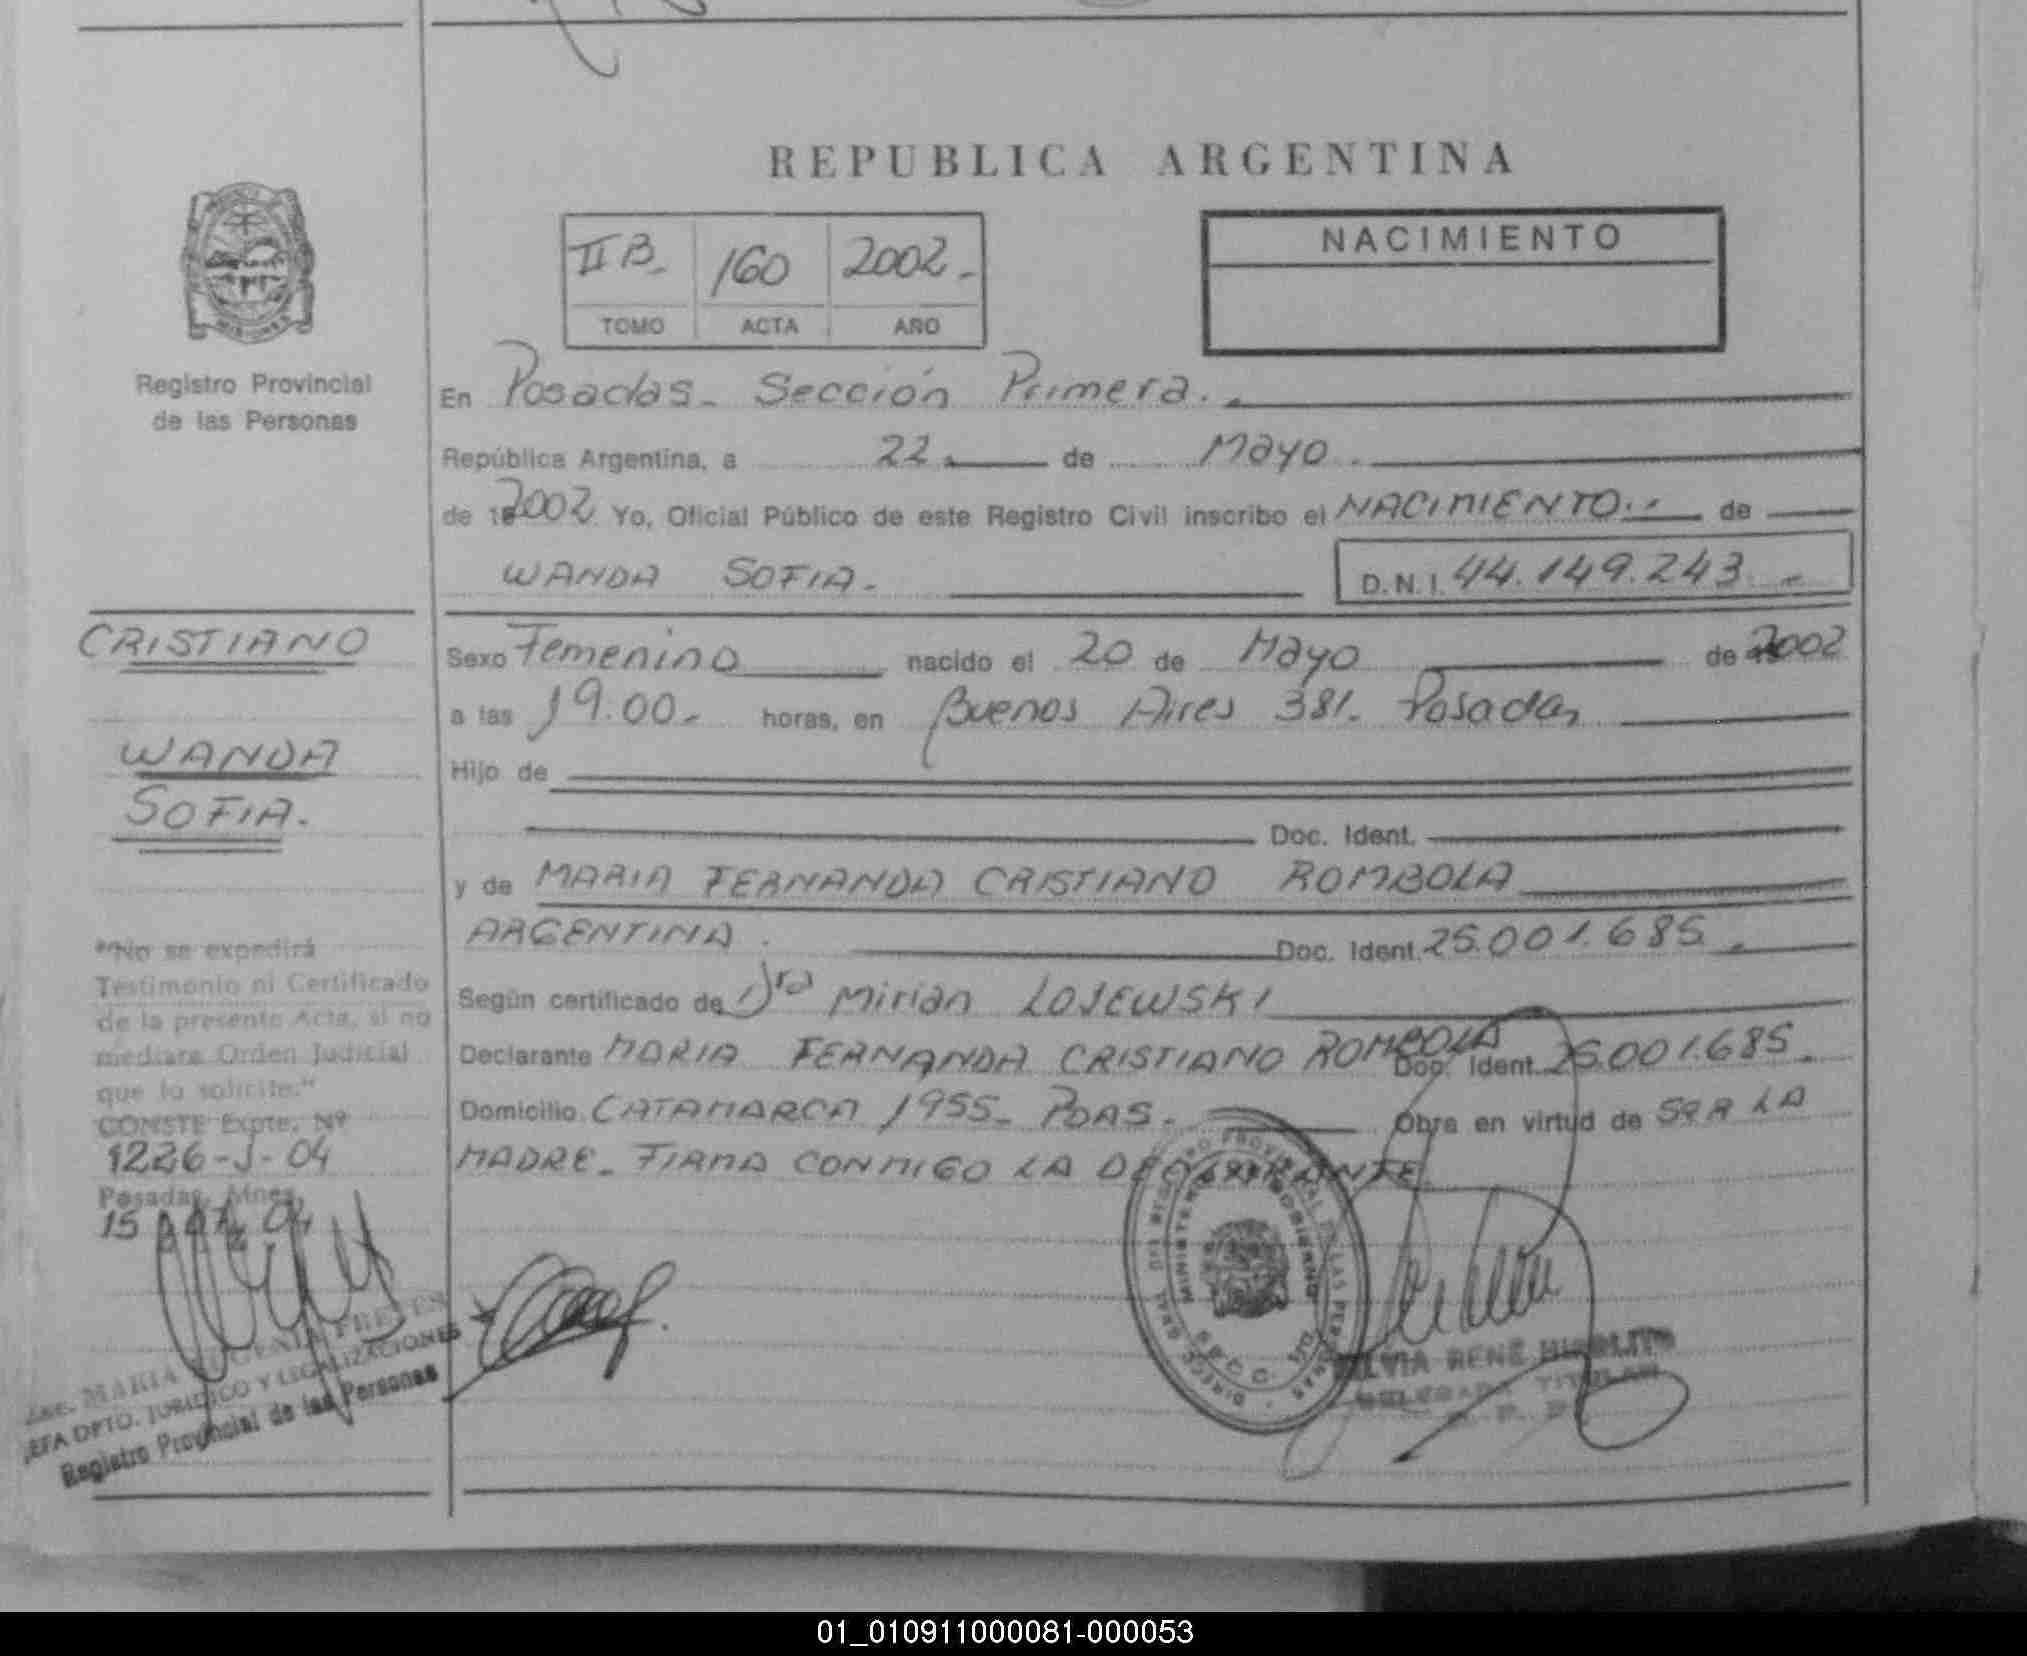 REPUBLICA ARGENTINA
MISIONES
Registro Provincial
de las Personas
II B. 160 2002.-
TOMO ACTA AÑO
NACIMIENTO
En Posadas - Sección Primera.
República Argentina, a 22 de Mayo
de 2002. Yo, Oficial Público de este Registro Civil inscribo el NACIMIENTO.. de
WANDA SOFIA.- D.N.I. 44.149.243 -
CRISTIANO
WANDA
SOFIA.
Sexo Femenino nacido el 20 de Mayo de 2002
a las 19.00.- horas, en Buenos Aires 381. Posadas
Hijo de
Doc. Ident.
y de MARIA FERNANDA CRISTIANO ROMBOLA
ARGENTINA. Doc. Ident. 25.001.685.
Según certificado de Dra Mirian LOJEWSKI
Declarante MARIA FERNANDA CRISTIANO ROMBOLA Doc. Ident. 25.001.685.
Domicilio CATAMARCA 1955- PDAS. Obra en virtud de SER LA
MADRE - FIRMA CONMIGO LA DECLARANTE.
"No se expedirá
Testimonio ni Certificado
de la presente Acta, si no
mediara Orden Judicial
que lo solicite."
CONSTE Expte. Nº
1226-J-04
Posadas, Mnes,
15 04
MARIA EUGENIA
JEFA DPTO. JURIDICO Y LEGALIZACIONES
Registro Provincial de las Personas
MINISTERIO DE GOBIERNO
SILVIA RENÉ HIPOLITO
DELEGADA TITULAR
01_010911000081-000053